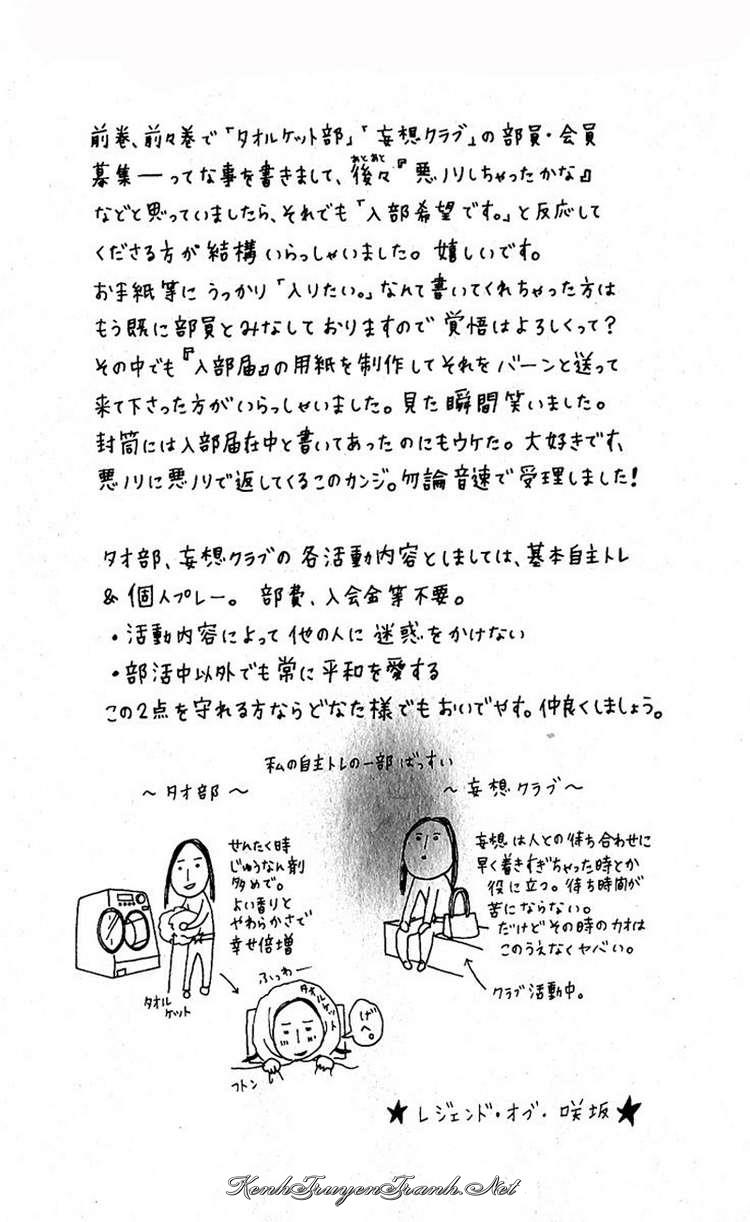 前巻、前々巻で「タオルケット部」「妄想クラブ」の部員・会員
募集――ってな事を書きまして、後々『悪ノリしちゃったかな』
あとあと
などと思っていましたら、それでも「入部希望です。」と反応して
くださる方が結構いらっしゃいました。嬉しいです。
お手紙等にうっかり「入りたい。」なんて書いてくれちゃった方は
もう既に部員とみなしておりますので覚悟はよろしくって？
その中でも『入部届』の用紙を制作してそれをバーンと送って
来て下さった方がいらっしゃいました。見た瞬間笑いました。
封筒には入部届在中と書いてあったのにもウケた。大好きです、
悪ノリに悪ノリで返してくるこのカンジ。勿論音速で受理しました！
タオ部、妄想クラブの各活動内容としましては、基本自主トレ
& 個人プレー。部費、入会金等不要。
・活動内容によって他の人に迷惑をかけない
・部活中以外でも常に平和を愛する
この2点を守れる方ならどなた様でもおいでやす。仲良くしましょう。
私の自主トレの一部ばっすい
～タオ部～
せんたく時
じゅうなん剤
多めで。
よい香りと
やわらかさで
幸せ倍増
タオル
ケット
ふっわー
タオルケット
げへ。
フトン
～妄想クラブ～
妄想は人との待ち合わせに
早く着きすぎちゃった時とか
役に立つ。待ち時間が
苦にならない。
だけどその時のカオは
このうえなくヤバい。
クラブ活動中。
★レジェンド・オブ・咲坂★
KenhTruyenTranh.Net